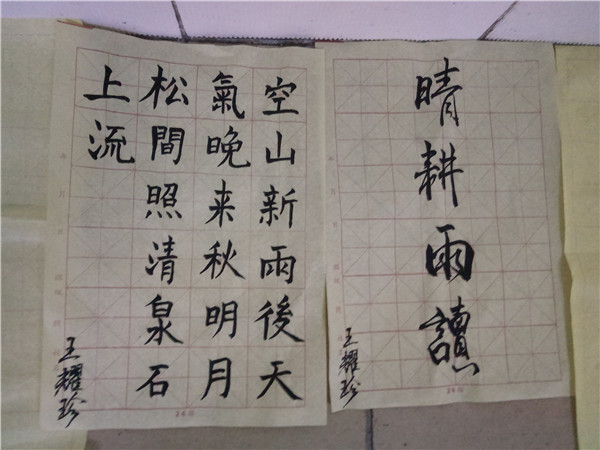 空山新雨後天
氣晚来秋明月
松間照清泉石
上流
王耀珍
晴耕雨讀
王耀珍